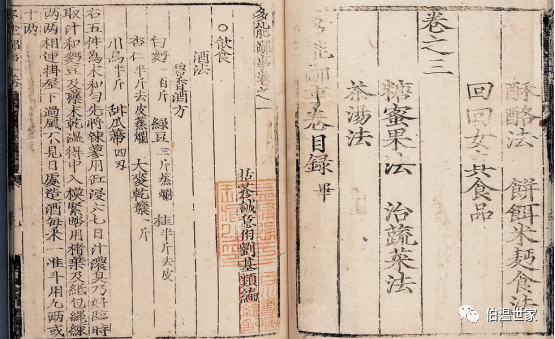 酥酪法　餅餌米麵食法
回回女真食品
卷之三
糖蜜果法　治蔬菜法
茶湯法
多能鄙事卷目錄畢
多能鄙事卷之一
括蒼誠意伯劉基類編
○飲食
酒法
香酒方
白麪百斤　綠豆斤蒸爛　桂半斤去皮
杏仁半斤去皮蒸爛　大麥乾糵一斤
川烏半斤　甜瓜蒂四
右五件為末和勻先將辣蓼用缸浸六七日汁濃臭乃好臨時
取汁和麪豆及糵末乾濕得中入模緊踏用楮葉及紙包繩
兩兩相連掛屋下過風不見日處造酒每米一斗用九兩或
十兩
伯温世家